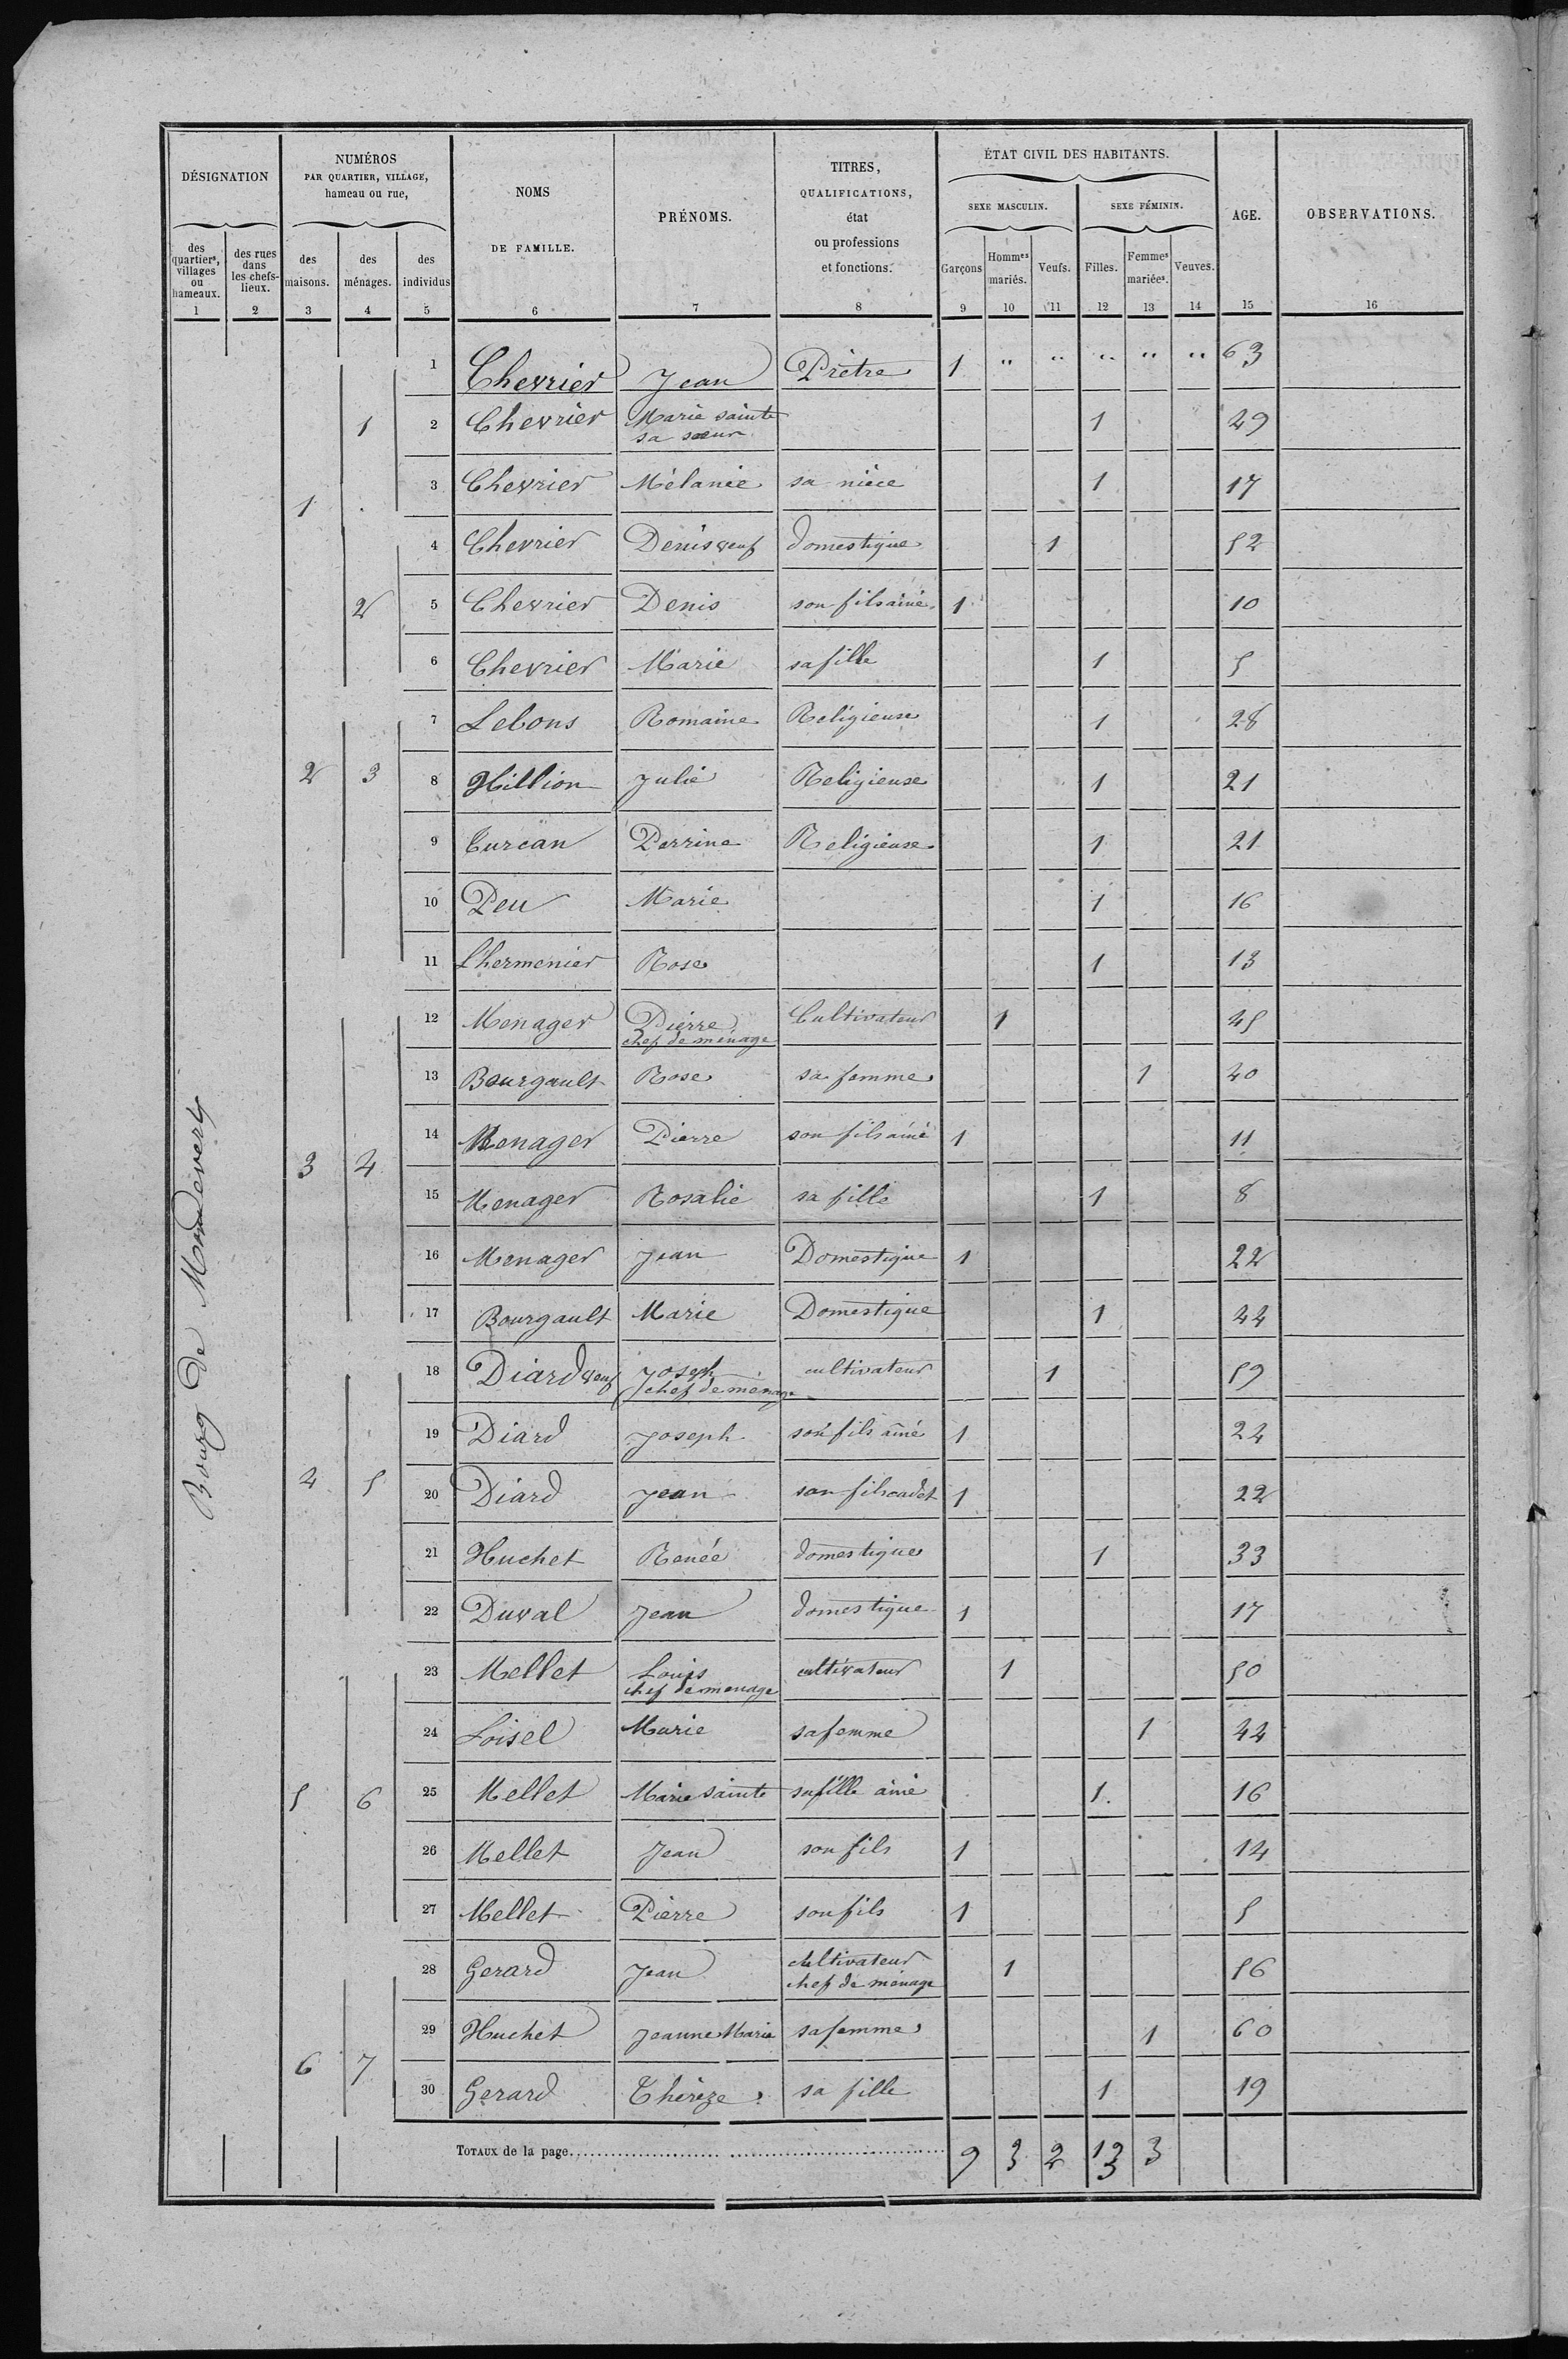 DÉSIGNATION
NUMÉROS
PAR QUARTIER, VILLAGE,
hameau ou rue,
NOMS
DE FAMILLE.
PRÉNOMS.
TITRES,
QUALIFICATIONS,
état
ou professions
et fonctions.
ÉTAT CIVIL DES HABITANTS.
SEXE MASCULIN.
SEXE FÉMININ.
AGE.
OBSERVATIONS.
des quartiers, villages ou hameaux.
des rues dans les chefs-lieux.
des maisons.
des ménages.
des individus
Garçons
Hommes mariés.
Veufs.
Filles.
Femmes mariées.
Veuves.
1 2 3 4 5 6 7 8 9 10 11 12 13 14 15 16
Bourg de
1 Chevrier Jean Prètre 1 " " " " " 63
1 2 Chevrier Marie sainte sa sœur 1 29
1 3 Chevrier Mélanie sa nièce 1 17
4 Chevrier Denis veuf domestique 1 52
2 5 Chevrier Denis son fils ainé 1 10
6 Chevrier Marie sa fille 1 5
7 Lebons Romaine Religieuse 1 28
2 3 8 Hillion Julie Religieuse 1 21
9 Turcan Perrine Religieuse 1 21
10 Peu Marie 1 16
11 Lhermenier Rose 1 13
12 Menager Pierre chef de ménage Cultivateur 1 45
13 Bourgault Rose sa femme 1 40
3 4 14 Menager Pierre son fils ainé 1 11
15 Menager Rosalie sa fille 1 8
16 Menager Jean Domestique 1 22
17 Bourgault Marie Domestique 1 44
18 Diard veuf Joseph chef de ménage cultivateur 1 59
19 Diard Joseph son fils ainé 1 24
4 5 20 Diard Jean son fils cadet 1 22
21 Huchet Renée domestique 1 33
22 Duval Jean domestique 1 17
23 Mellet Louis chef de menage cultivateur 1 50
24 Loisel Marie sa femme 1 44
5 6 25 Mellet Marie sainte sa fille ainé 1 16
26 Mellet Jean son fils 1 14
27 Mellet Pierre son fils 1 5
28 Gerard Jean cultivateur chef de menage 1 56
29 Huchet Jeanne Marie sa femme 1 60
6 7 30 Gerard Thérèze sa fille 1 19
TOTAUX de la page 9 3 2 13 3